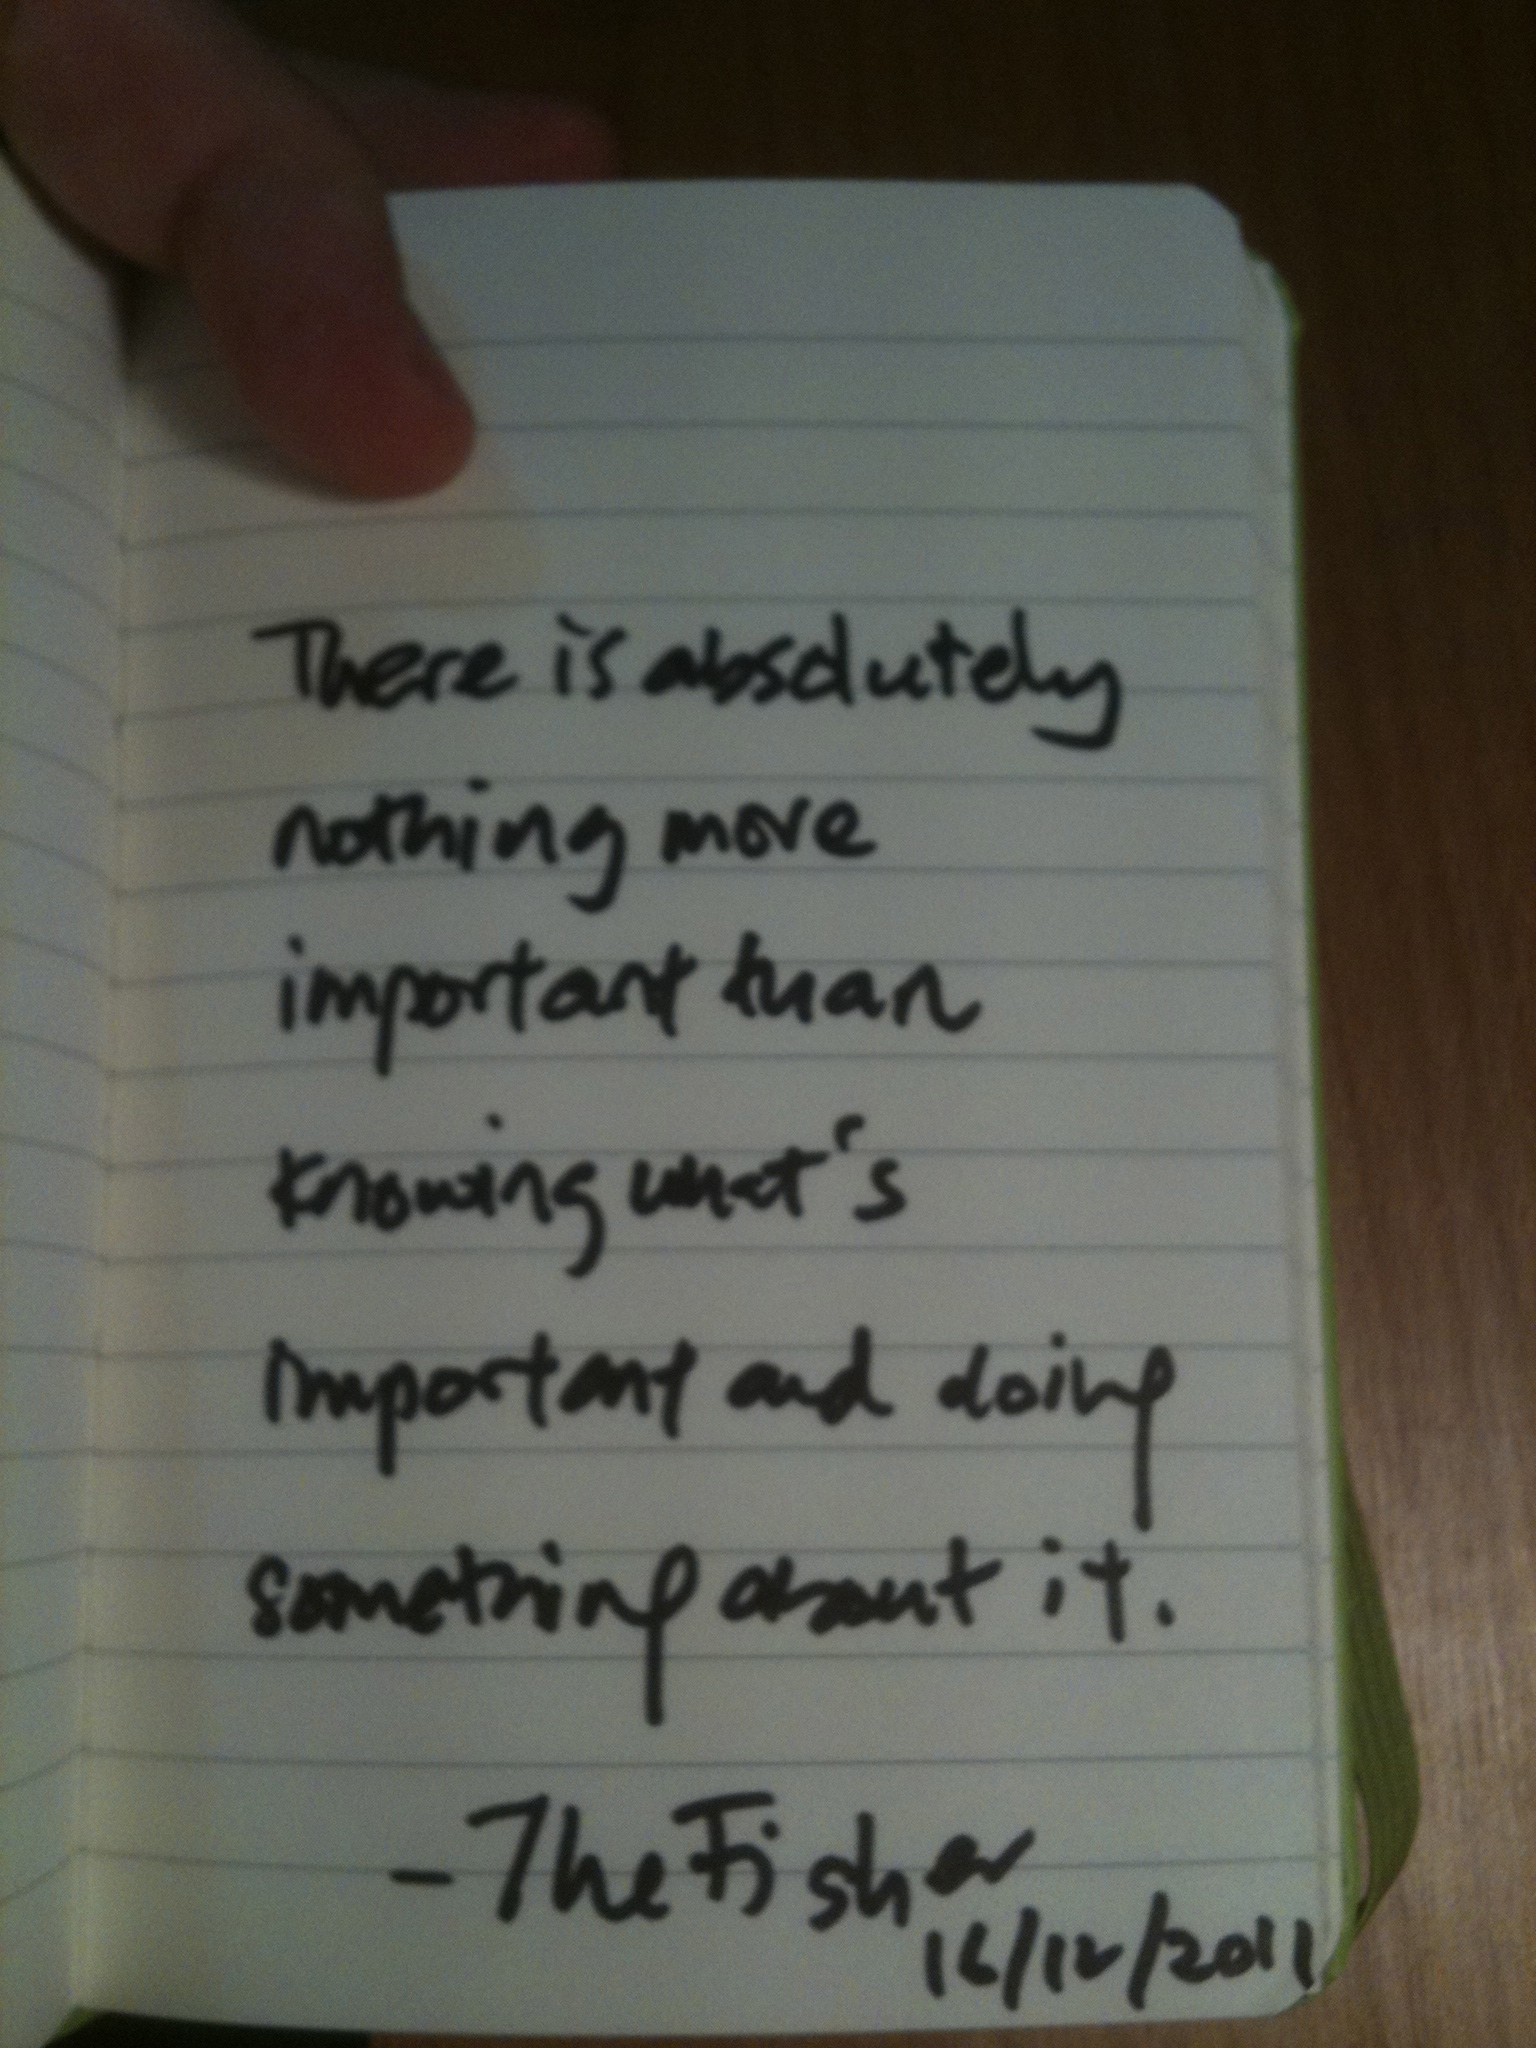 There is absolutely
nothing more
important than
knowing what's
important and doing
something about it.
- The Fisher
16/12/2011